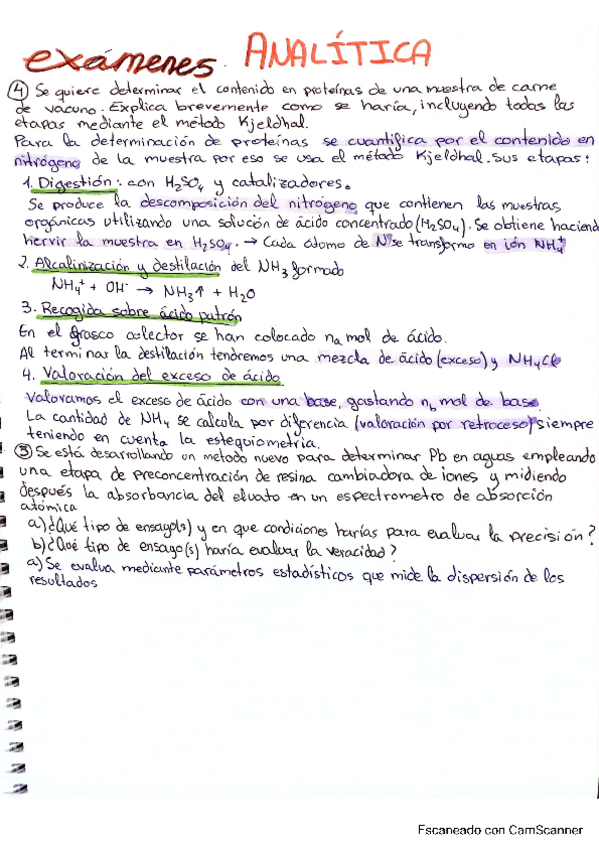 exámenes. ANALÍTICA
④ Se quiere determinar el contenido en proteínas de una muestra de carne
de vacuno. Explica brevemente como se haría, incluyendo todas las
etapas mediante el método Kjeldhal.
Para la determinación de proteínas se cuantifica por el contenido en
nitrógeno de la muestra por eso se usa el método Kjeldhal. Sus etapas:
1. Digestión: con H₂SO₄ y catalizadores.
Se produce la descomposición del nitrógeno que contienen las muestras
orgánicas utilizando una solución de ácido concentrado (H₂SO₄). Se obtiene haciendo
hervir la muestra en H₂SO₄. → Cada átomo de N se transforma en ión NH₄⁺
2. Alcalinización y destilación del NH₃ formado
NH₄⁺ + OH⁻ → NH₃↑ + H₂O
3. Recogida sobre ácido patrón
En el frasco colector se han colocado nₐ mol de ácido.
Al terminar la destilación tendremos una mezcla de ácido (exceso) y NH₄Cl
4. Valoración del exceso de ácido
Valoramos el exceso de ácido con una base, gastando n_b mol de base.
La cantidad de NH₄ se calcula por diferencia (valoración por retroceso) siempre
teniendo en cuenta la estequiometría.
⑤ Se está desarrollando un metodo nuevo para determinar Pb en aguas empleando
una etapa de preconcentración de resina cambiadora de iones y midiendo
después la absorbancia del eluato en un espectrometro de absorción
atómica
a) ¿Qué tipo de ensayo(s) y en que condiciones harías para evaluar la precisión?
b) ¿Qué tipo de ensayo(s) haría evaluar la veracidad?
a) Se evalua mediante parámetros estadísticos que mide la dispersión de los
resultados
Escaneado con CamScanner